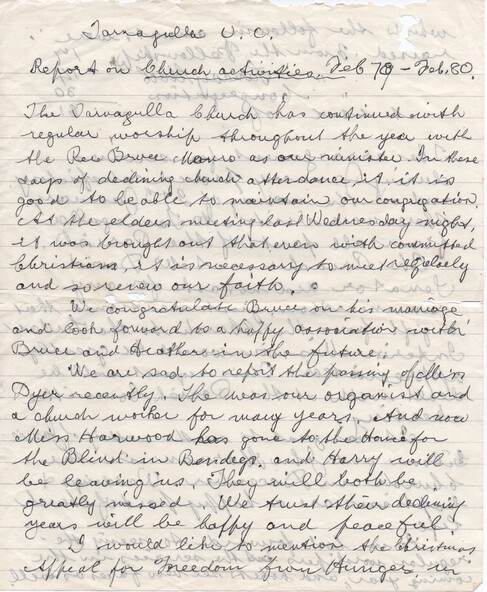 Tarnagulla U.C.
Report on Church activities. Feb 79 - Feb. 80.
The Tarnagulla Church has continued with
regular worship throughout the year with
the Rev Bruce Munro as our minister. In these
days of declining church attendance it, it is
good to be able to maintain our congregation.
At the elders meeting last Wednesday night,
it was brought out that even with committed
Christians it is necessary to meet regularly
and so renew our faith.
We congratulate Bruce on his marriage
and look forward to a happy association with
Bruce and Heather in the future.
We are sad to report the passing of Miss
Dyer recently. She was our organist and
a church worker for many years. And now
Miss Harwood has gone to the Home for
the Blind in Bendigo, and Harry will
be leaving us. They will both be
greatly missed. We trust their declining
years will be happy and peaceful.
I would like to mention the Christmas
Appeal for Freedom from Hunger, in